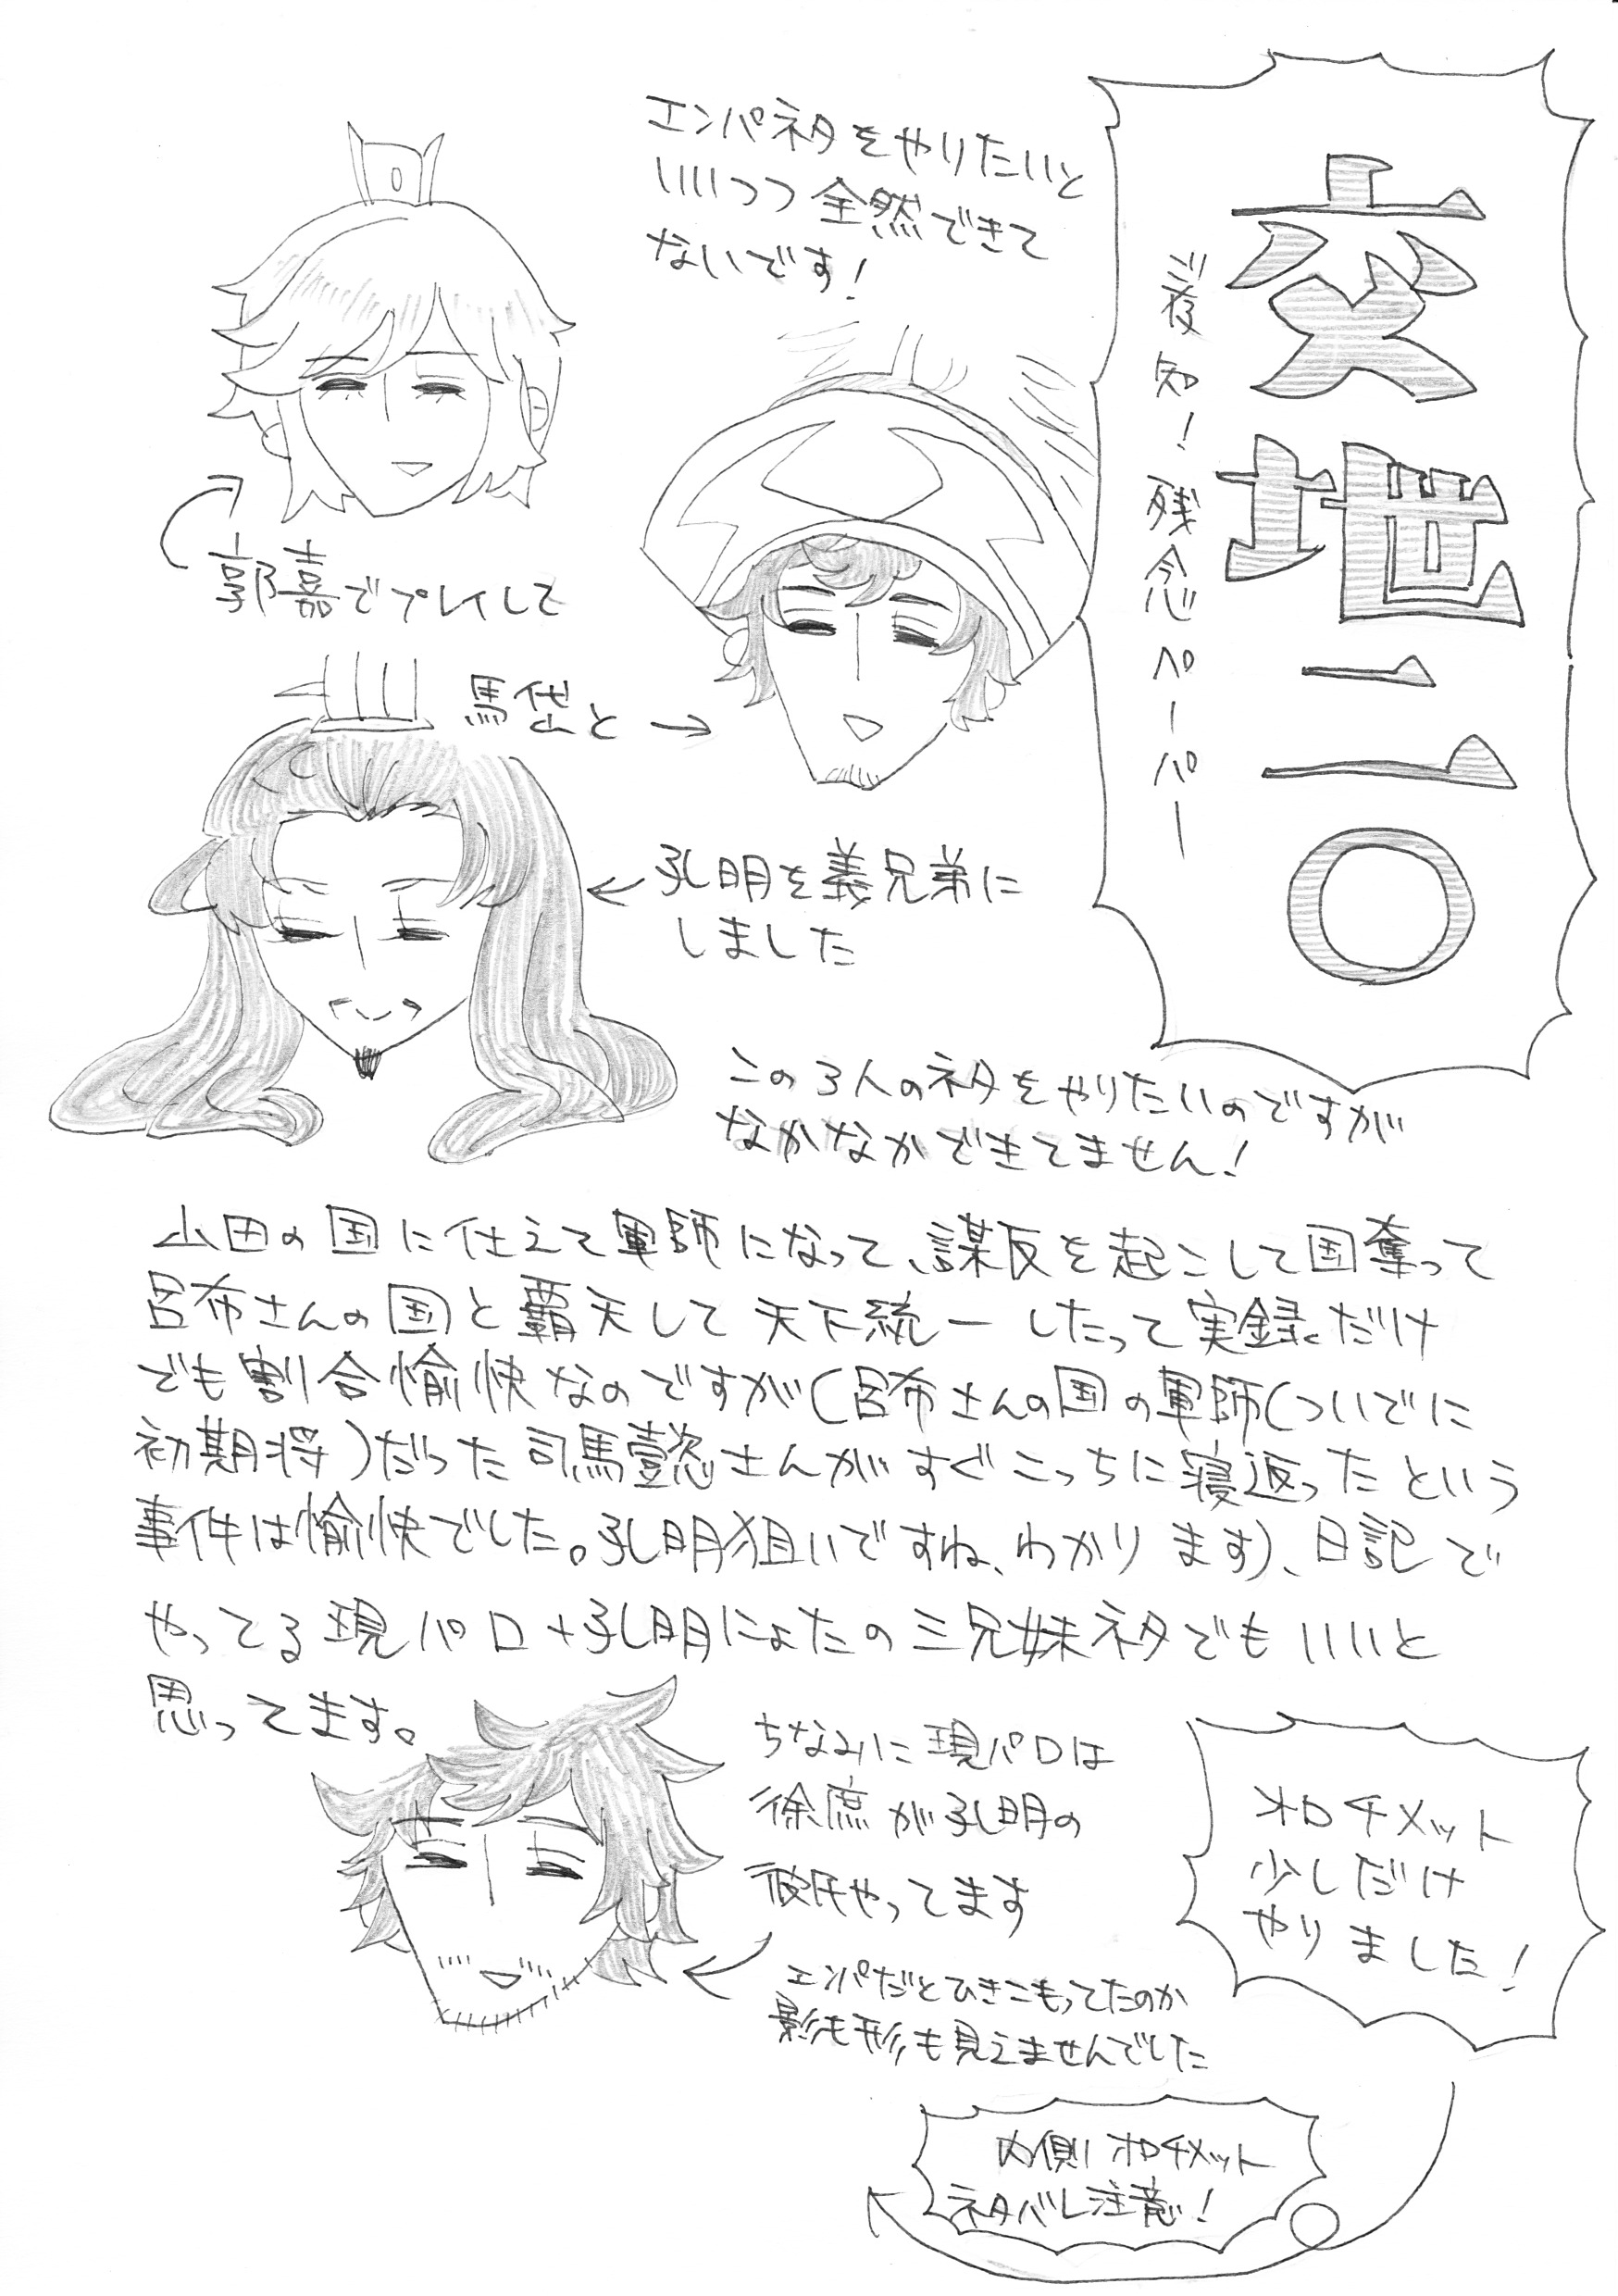 交地二一〇
※夜知！残念ペーパー
エンパネタをやりたいと
いいつつ全然できて
ないです！
郭嘉でプレイして
馬岱と
孔明を義兄弟に
しました
この3人のネタをやりたいのですが
なかなかできてません！
山田の国に仕えて軍師になって、謀反を起こして国奪って
呂布さんの国と覇天して天下統一したって実録だけ
でも割合愉快なのですが(呂布さんの国の軍師(ついでに
初期将)だった司馬懿さんがすぐこっちに寝返ったという
事件は愉快でした。孔明狙いですね、わかります)、日記で
やってる現パロ+孔明にょたの三兄妹ネタでもいいと
思ってます。
ちなみに現パロは
徐庶が孔明の
彼氏やってます
エンパだとひきこもってたのか
影も形も見えませんでした
オロチメット
少しだけ
やりました！
内側オロチメット
ネタバレ注意！